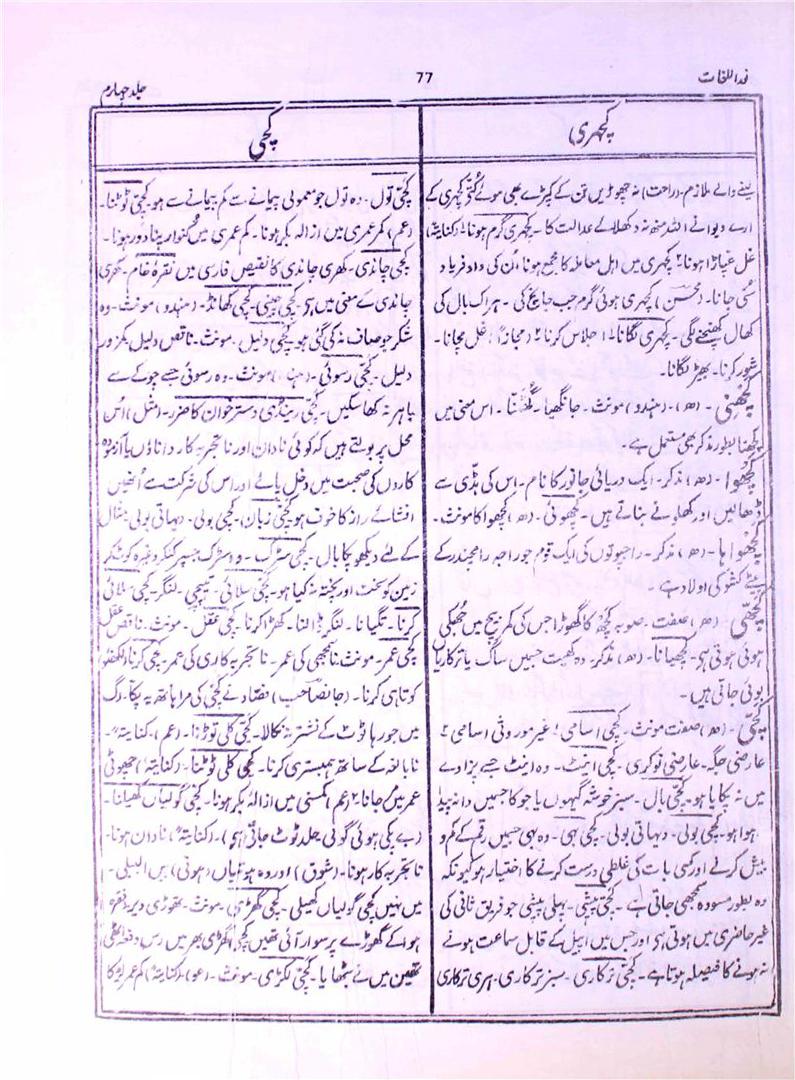 نوراللغات
77
جلد چہارم
کچہری
کچی
لینے والے ملازم۔ (راحت) نہ چھوڑیں تن کے کپڑے بھی موئے کُتّے کچہری کے
ارے دیوانے اللہ منھ نہ دکھلائے عدالت کا۔ کچہری گرم ہونا۔ (کنایتہ)
غل غپاڑا ہونا ۲ کچہری میں اہل معاملہ کا مجمع ہونا اُن کی داد فریاد
سُنی جانا۔ (محسن) کچہری ہوئی گرم جب جانچ کی۔ ہر اک بال کی
کھال کھنچنے لگی۔ کچہری لگانا۔ اجلاس کرنا ۲ (مجازاً) غل مچانا۔
شور کرنا۔ بھیڑ لگانا۔
کچھنی۔ (ھ)۔ (ہندو) مونث۔ جانگھیا۔ گھٹنا۔ اس معنی میں
کچھنا بطور مذکر بھی مستعمل ہے۔
کچھوا۔ (ھ) مذکر۔ ایک دریائی جانور کا نام۔ اس کی ہڈی سے
ڈھالیں اور کھلونے بناتے ہیں۔ کچھوئی۔ (ھ) کچھوا کا مونث۔
کچھواہا۔ (ھ) مذکر۔ راجپوتوں کی ایک قوم جو راجہ رامچندر کے
بیٹے کشو کی اولاد ہے۔
کچھی۔ (ھ) صفت۔ صوبہ کچھ کا گھوڑا جس کی کمر بیچ میں جُھکی
ہوئی ہوتی ہی۔ کچھیانا۔ (ھ) مذکر۔ وہ کھیت جسمیں ساگ یا ترکاریاں
بوئی جاتی ہیں۔
کچّی۔ (ھ) صفت مونث۔ کچی اسامی۔ غیر موروثی اسامی ۲
عارضی جگہ۔ عارضی نوکری۔ کچی اینٹ۔ وہ اینٹ جسے پزاوے
میں نہ پکایا ہو۔ کچی بال۔ سبز خوشہ گیہوں یا جو کا جسمیں دانہ نہ پیدا
ہوا ہو۔ کچی بولی۔ دیہاتی بولی۔ کچی بہی۔ وہ بہی جسمیں رقم کے کم و
بیش کرنے اور کسی بات کی غلطی درست کرنے کا اختیار ہو کیونکہ
وہ بطور مسودہ سمجھی جاتی ہے۔ کچی پیشی۔ پہلی پیشی جو فریق ثانی کی
غیر حاضری میں ہوتی ہی اور جس میں اپیل کے قابل سماعت ہونے
نہ ہونے کا فیصلہ ہوتا ہے۔ کچی ترکاری۔ سبز ترکاری۔ ہری ترکاری
کچی تول۔ وہ تول جو معمولی پیمانے سے کم پیمانے سے ہو۔ کچی ٹوٹنا۔
(عم) کم عمری میں ازالہ بکر ہونا۔ کم عمری میں کنوار پنا دور ہونا۔
کچی چاندی۔ کھری چاندی کا نقیض فارسی میں نقرۂ خام۔ کھری
چاندی کے معنی میں ہی۔ کچی چینی۔ کچی کھانڈ۔ (ہندو) مونث۔ وہ
شکر جو صاف نہ کی گئی ہو۔ کچی دلیل۔ مونث۔ ناقص دلیل۔ کمزور
دلیل۔ کچی رسوئی۔ (ہندو) مونث۔ وہ رسوئی جسے چوکے سے
باہر نہ کھا سکیں۔ کچی رینڈی دسترخوان کا ضرر۔ (مثل) اُس
محل پر بولتے ہیں کہ کوئی نادان اور ناتجربہ کار داناؤں یا آزمودہ
کاروں کی صحبت میں دخل پائے اور اس کی شرکت سے اُنھیں
افشائے راز کا خوف ہو۔ کچی زبان۔ کچی بولی۔ دیہاتی بولی مثال
کے لئے دیکھو پکا بال۔ کچی سڑک۔ وہ سڑک جسپر کنکر وغیرہ کوٹکر
زمین کو سخت اور پختہ نہ کیا ہو۔ کچی سلائی۔ تیپچی۔ لنگر۔ کچی سلائی
کرنا۔ تگیانا۔ لنگر ڈالنا۔ کھڑا کرنا۔ کچی عقل۔ مونث۔ ناقص عقل
کچی عمر۔ مونث ناسمجھی کی عمر۔ ناتجربہ کاری کی عمر۔ کچی کرنا (لکھنؤ)
کوتاہی کرنا۔ (جانصاحب) فصاد نے کچی کی مرا ہاتھ یہ پکا۔ رگ
میں جو رہا ٹوٹ کے نشتر نہ نکالا۔ کچی کلی توڑنا۔ (عم)۔ کنایتہ۔
نابالغہ کے ساتھ ہمبستری کرنا۔ کچی کلی ٹوٹنا۔ (کنایتہ) چھوٹی
عمر میں مر جانا ۲ (عم) کمسنی میں ازالہ بکر ہونا۔ کچی گولیاں کھیلنا۔
(بے پکی ہوئی گولی جلد ٹوٹ جاتی ہی)۔ (کنایتہ) نادان ہونا۔
ناتجربہ کار ہونا۔ (شوق) اور وہ ہوتیاں (ہونی) ہیں البیلی۔
میں نہیں کچی گولیاں کھیلی۔ کچی گھڑی۔ مونث۔ تھوڑی دیر۔ فقرہ
ہوا کے گھوڑے پر سوار آئی تھیں کچی گھڑی بھر میں دس دفعہ اٹھی
تھیں میں نے بٹھایا۔ کچی لکڑی۔ مونث۔ (عو)۔ (کنایتہ) کم عمر لڑکا